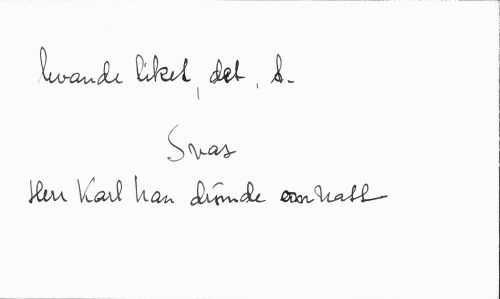 levande liket, det, s.
Svas
Herr Karl han drömde om natt